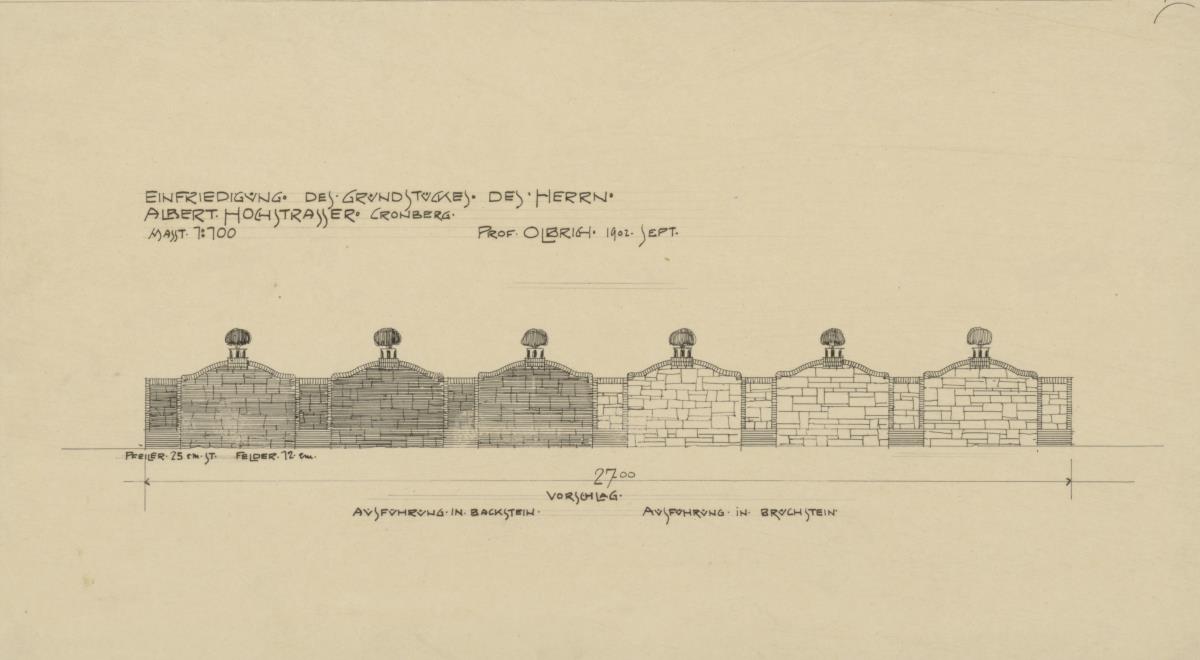 EINFRIEDIGUNG· DES· GRUNDSTÜCKES· DES· HERRN·
ALBERT· HOCHSTRASSER· CRONBERG·
MASST· 1:100
PROF· OLBRICH· 1902· SEPT·
PFEILER· 25 cm· ST· FELDER· 12 cm·
27 00
VORSCHLAG·
AUSFÜHRUNG· IN· BACKSTEIN·
AUSFÜHRUNG· IN· BRUCHSTEIN·